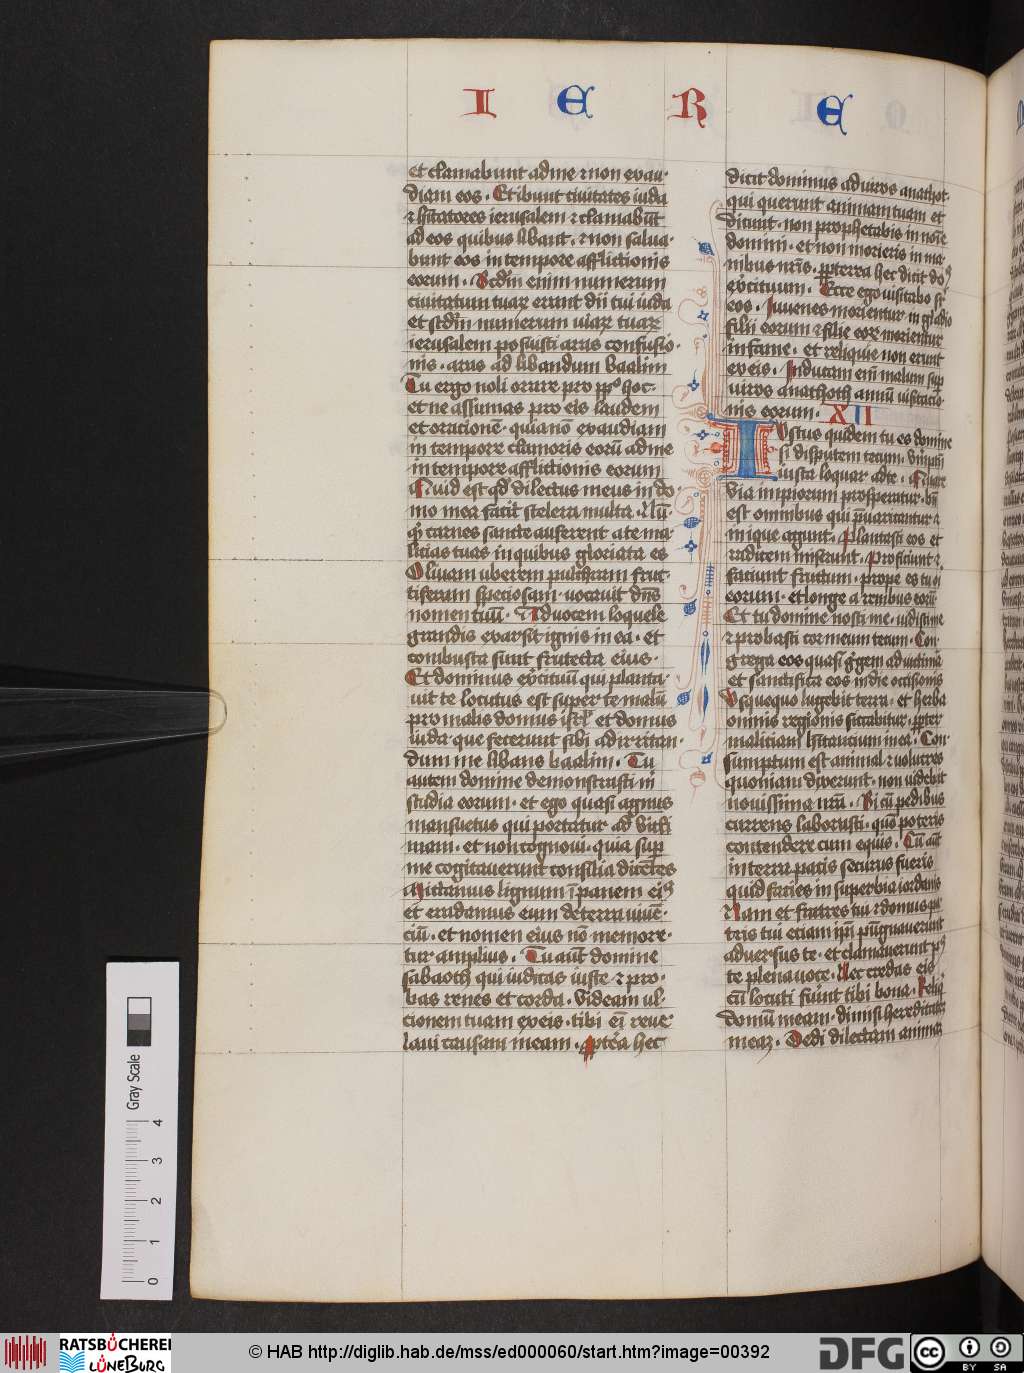 I E R E
et clamabunt ad me ⁊ non exau-
diam eos. Et ibunt civitates iuda
⁊ hitatores ierusalem ⁊ clamabūt
ad eos quibus libant. ⁊ non salua-
bunt eos in tempore afflictionis
eorum. Scdm enim numerum
civitatum tuaꝝ erant dii tui iuda
et scdm numerum uiaꝝ tuaꝝ
ierusalem posuisti aras confusio-
nis. aras ad libandum baalim
Tu ergo noli orare pro pplo hoc.
et ne assumas pro eis laudem
et orationē. quia nō exaudiam
in tempore clamoris eorū ad me
in tempore afflictionis eorum
Quid est qd dilectus meus in do-
mo mea facit scelera multa. Nū-
qd carnes sancte auferent a te ma-
licias tuas in quibus gloriata es
Olivam uberem pulchram fruc-
tiferam speciosam uocauit dns
nomen tuū. Ad uocem loquele
grandis exarsit ignis in ea. et
combusta sunt frutecta eius.
Et dominus exercituū qui planta-
uit te locutus est super te malū
pro malis domus isrl et domus
iuda que fecerunt sibi ad irritan-
dum me libans baalim. Tu
autem domine demonstrasti mi
studia eorum. et ego quasi agnus
mansuetus qui portatur ad victi
mam. et non cognoui. quia sup
me cogitauerunt consilia dicētes
Mittamus lignum ī panem eis
et eradamus eum de terra uiuē-
ciū. et nomen eius nō memore-
tur amplius. Tu aūt domine
sabaoth qui iudicas iuste ⁊ pro-
bas renes et corda. videam ul-
cionem tuam ex eis. tibi ei reue-
laui causam meam. Ptea hec
dicit dominus ad uiros anathot.
qui querunt animam tuam et
dicunt. non prophetabis in noīe
domini. et non morieris in ma-
nibus nris. ppterea hec dicit dos
exercituum. Ecce ego visitabo sr
eos. Iuuenes morientur in gladio
filii eorum ⁊ filie eorꝝ morientur
in fame. et reliquie non erunt
ex eis. Inducam eni malum sup
uiros anathoth annū visitacio-
nis eorum. XII
Iustus quidem tu es domine
si disputem tecum. vtūptn
iusta loquar ad te. Quare
via impiorum prosperatur. bn
est omnibus qui puaricantur ⁊
inique agunt. Plantasti eos et
radicem miserunt. Proficiunt ⁊
faciunt fructum. prope es tu ori
eorum. et longe a renibus eorū
Et tu domine nosti me. uidisti me
⁊ probasti cor meum tecum. Con-
grega eos quasi gregem ad victimā
et sanctifica eos in die occisionis
Vsquequo lugebit terra. et herba
omnis regionis siccabitur. ppter
maliciam hitancium in ea. Con-
sumptum est animal ⁊ volucres
quoniam dixerunt. non videbit
nouissima nrā. Si cū pedibus
currens laborasti. quō poteris
contendere cum equis. Cū aūt
in terra pacis securus fueris
quid facies in superbia iordanis
Nam et fratres tui ⁊ domus pa-
tris tui eciam ipi pugnauerunt
aduersus te. et clamauerunt ps
te plena uoce. Nec credas eis
cū locuti fuint tibi bona. Reliq
domū meam. dimisi hereditatē
meaꝫ. Dedi dilectam animaꝫ
Gray Scale
0 1 2 3 4
RATSBÜCHEREI
LÜNEBURG
© HAB http://diglib.hab.de/mss/ed000060/start.htm?image=00392
DFG
cc BY SA